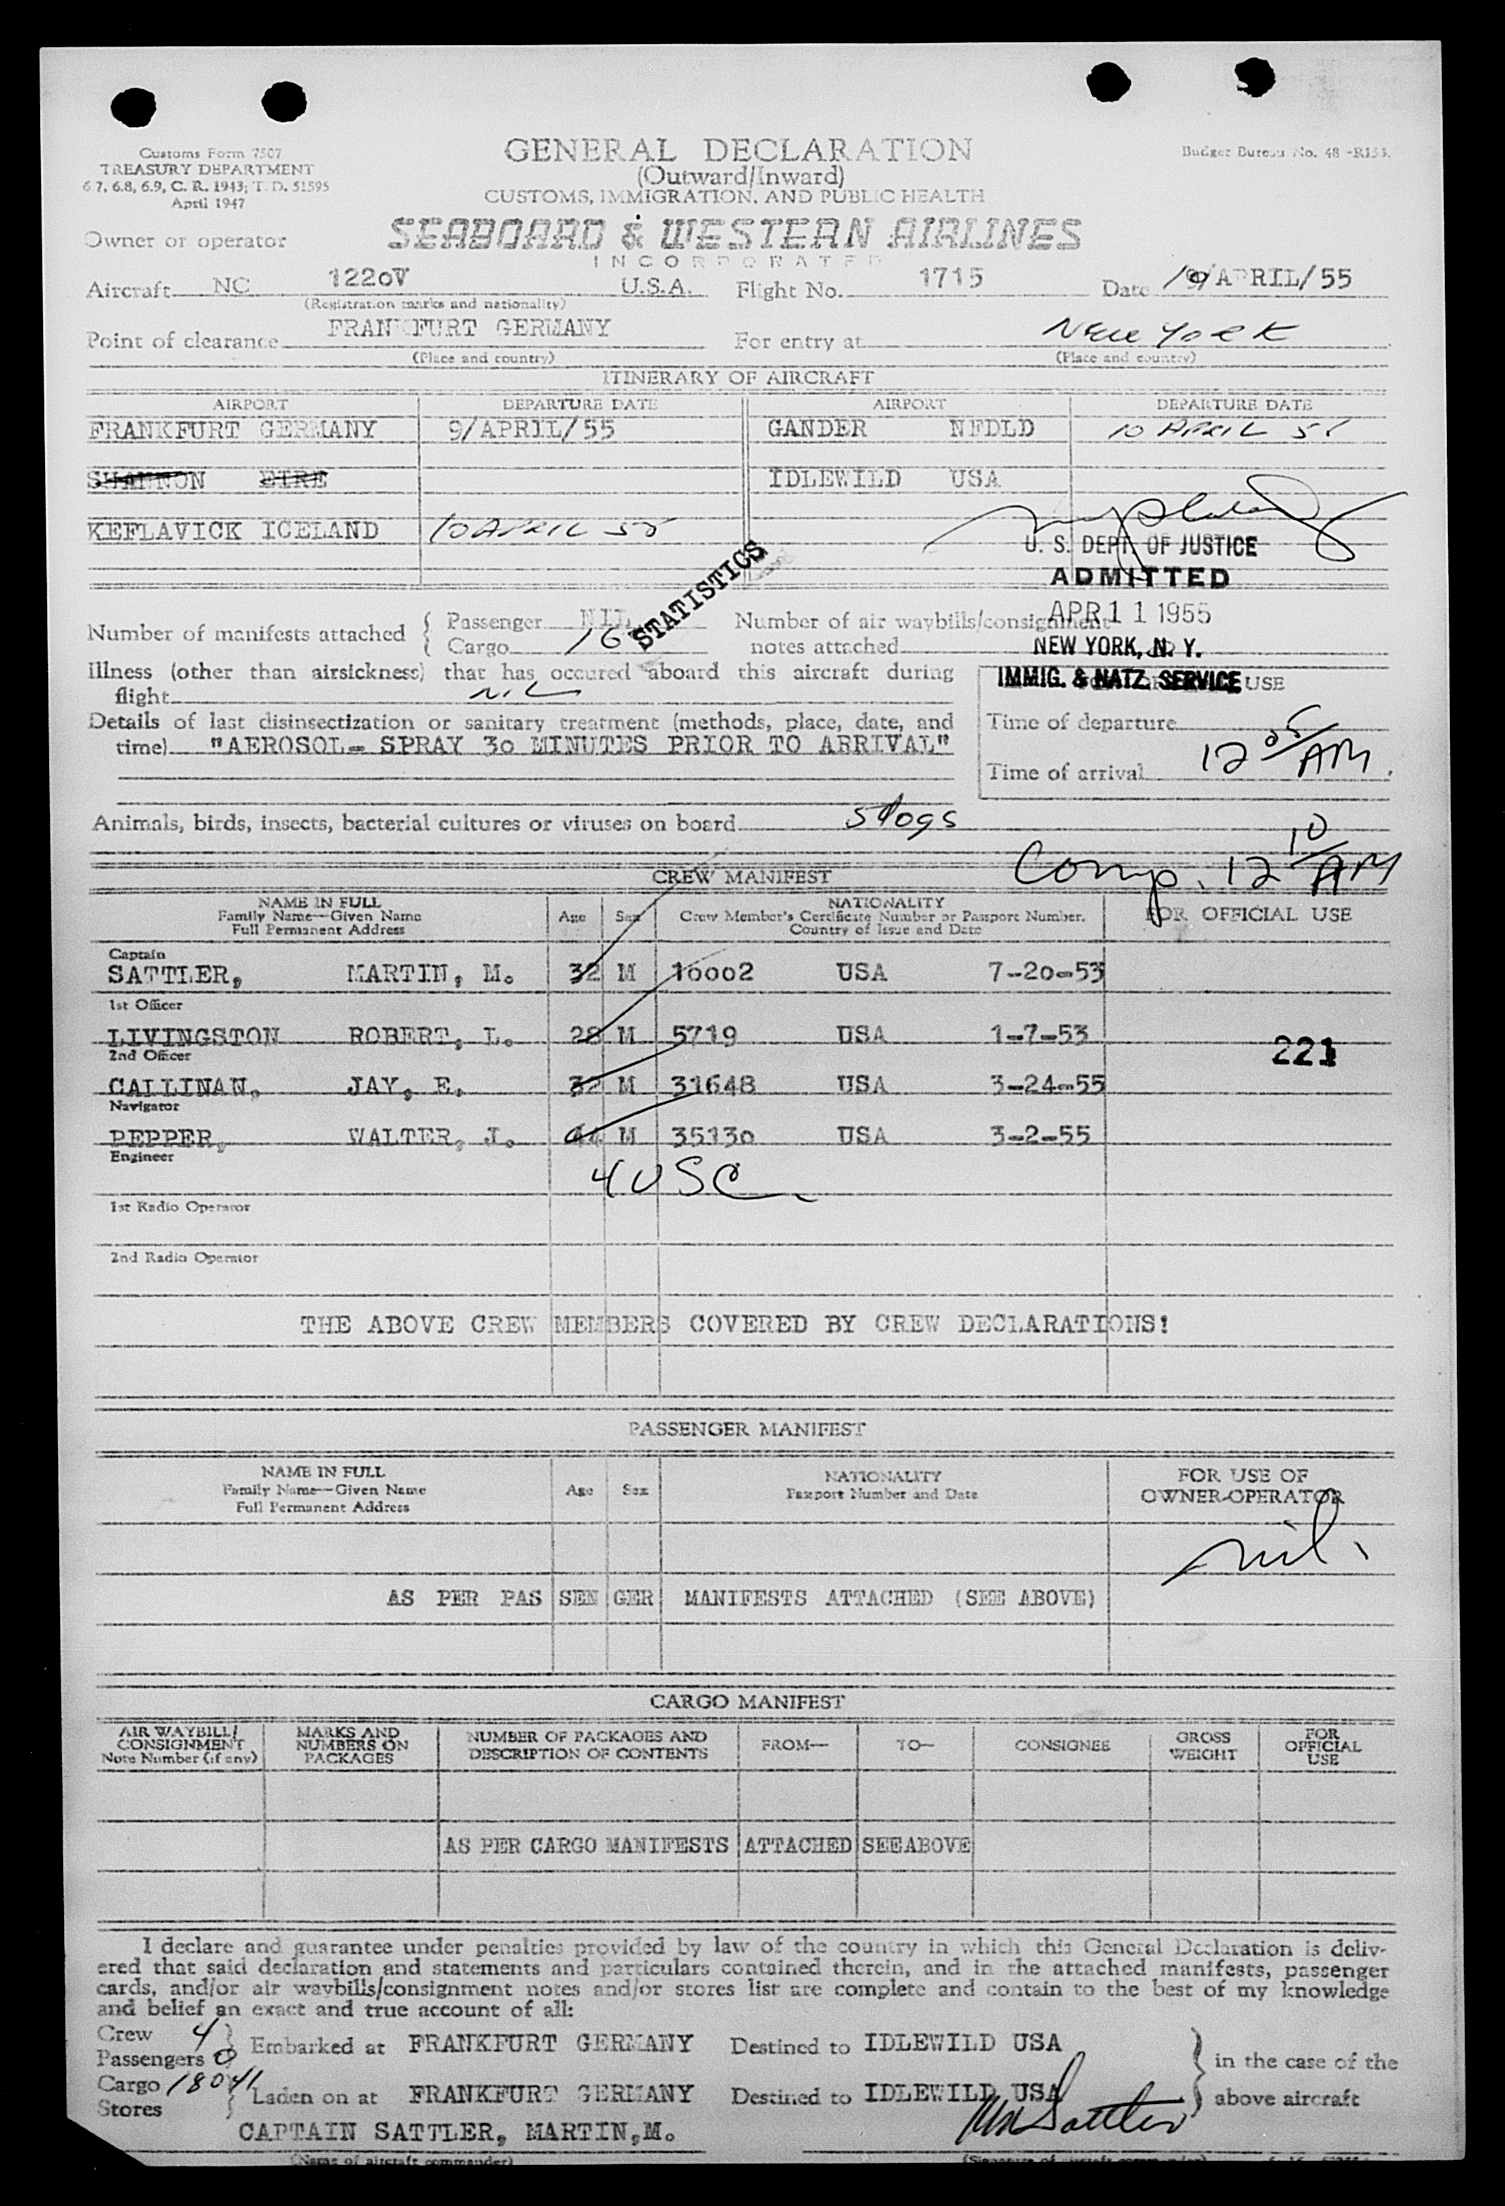 Customs Form 7507
TREASURY DEPARTMENT
6.7, 6.8, 6.9, C. R. 1943; T. D. 51595
April 1947
GENERAL DECLARATION
(Outward/Inward)
CUSTOMS, IMMIGRATION, AND PUBLIC HEALTH
Budget Bureau No. 48-R153.
Owner or operator SEABOARD & WESTERN AIRLINES
INCORPORATED
Aircraft NC 1220V U.S.A. Flight No. 1715 Date APRIL/55
(Registration marks and nationality)
Point of clearance FRANKFURT GERMANY For entry at NEW YORK
(Place and country) (Place and country)
ITINERARY OF AIRCRAFT
AIRPORT DEPARTURE DATE AIRPORT DEPARTURE DATE
FRANKFURT GERMANY 9/APRIL/55 GANDER NFDLD 10 APRIL 55
SHANNON EIRE IDLEWILD USA
KEFLAVICK ICELAND 10 APRIL 55
U. S. DEPT. OF JUSTICE
ADMITTED
APR 11 1955
NEW YORK, N. Y.
IMMIG. & NATZ. SERVICE
STATISTICS
Number of manifests attached { Passenger NIL
Cargo 16
Number of air waybills/consignment
notes attached
Illness (other than airsickness) that has occured aboard this aircraft during
flight NIL
USE
Details of last disinsectization or sanitary treatment (methods, place, date, and
time) "AEROSOL- SPRAY 30 MINUTES PRIOR TO ARRIVAL"
Time of departure
Time of arrival 12 05 AM
Animals, birds, insects, bacterial cultures or viruses on board 5 dogs
Comp. 12 10 AM
CREW MANIFEST
NAME IN FULL
Family Name—Given Name
Full Permanent Address
Age Sex
NATIONALITY
Crew Member's Certificate Number or Passport Number.
Country of Issue and Date
FOR OFFICIAL USE
Captain
SATTLER, MARTIN, M. 32 M 10002 USA 7-20-53
1st Officer
LIVINGSTON ROBERT, L. 28 M 5719 USA 1-7-53
221
2nd Officer
CALLINAN, JAY, E. 32 M 31648 USA 3-24-55
Navigator
PEPPER, WALTER, J. 44 M 35130 USA 3-2-55
Engineer
4 USC
1st Radio Operator
2nd Radio Operator
THE ABOVE CREW MEMBERS COVERED BY CREW DECLARATIONS!
PASSENGER MANIFEST
NAME IN FULL
Family Name—Given Name
Full Permanent Address
Age Sex
NATIONALITY
Passport Number and Date
FOR USE OF
OWNER-OPERATOR
nil.
AS PER PAS SEN GER MANIFESTS ATTACHED (SEE ABOVE)
CARGO MANIFEST
AIR WAYBILL/
CONSIGNMENT
Note Number (if any)
MARKS AND
NUMBERS ON
PACKAGES
NUMBER OF PACKAGES AND
DESCRIPTION OF CONTENTS
FROM—
TO—
CONSIGNEE
GROSS
WEIGHT
FOR
OFFICIAL
USE
AS PER CARGO MANIFESTS ATTACHED SEE ABOVE
I declare and guarantee under penalties provided by law of the country in which this General Declaration is deliv-
ered that said declaration and statements and particulars contained therein, and in the attached manifests, passenger
cards, and/or air waybills/consignment notes and/or stores list are complete and contain to the best of my knowledge
and belief an exact and true account of all:
Crew 4
Passengers 0 } Embarked at FRANKFURT GERMANY Destined to IDLEWILD USA
Cargo 18041
Stores } Laden on at FRANKFURT GERMANY Destined to IDLEWILD USA
in the case of the
above aircraft
CAPTAIN SATTLER, MARTIN,M. MM Sattler
(Name of aircraft commander)